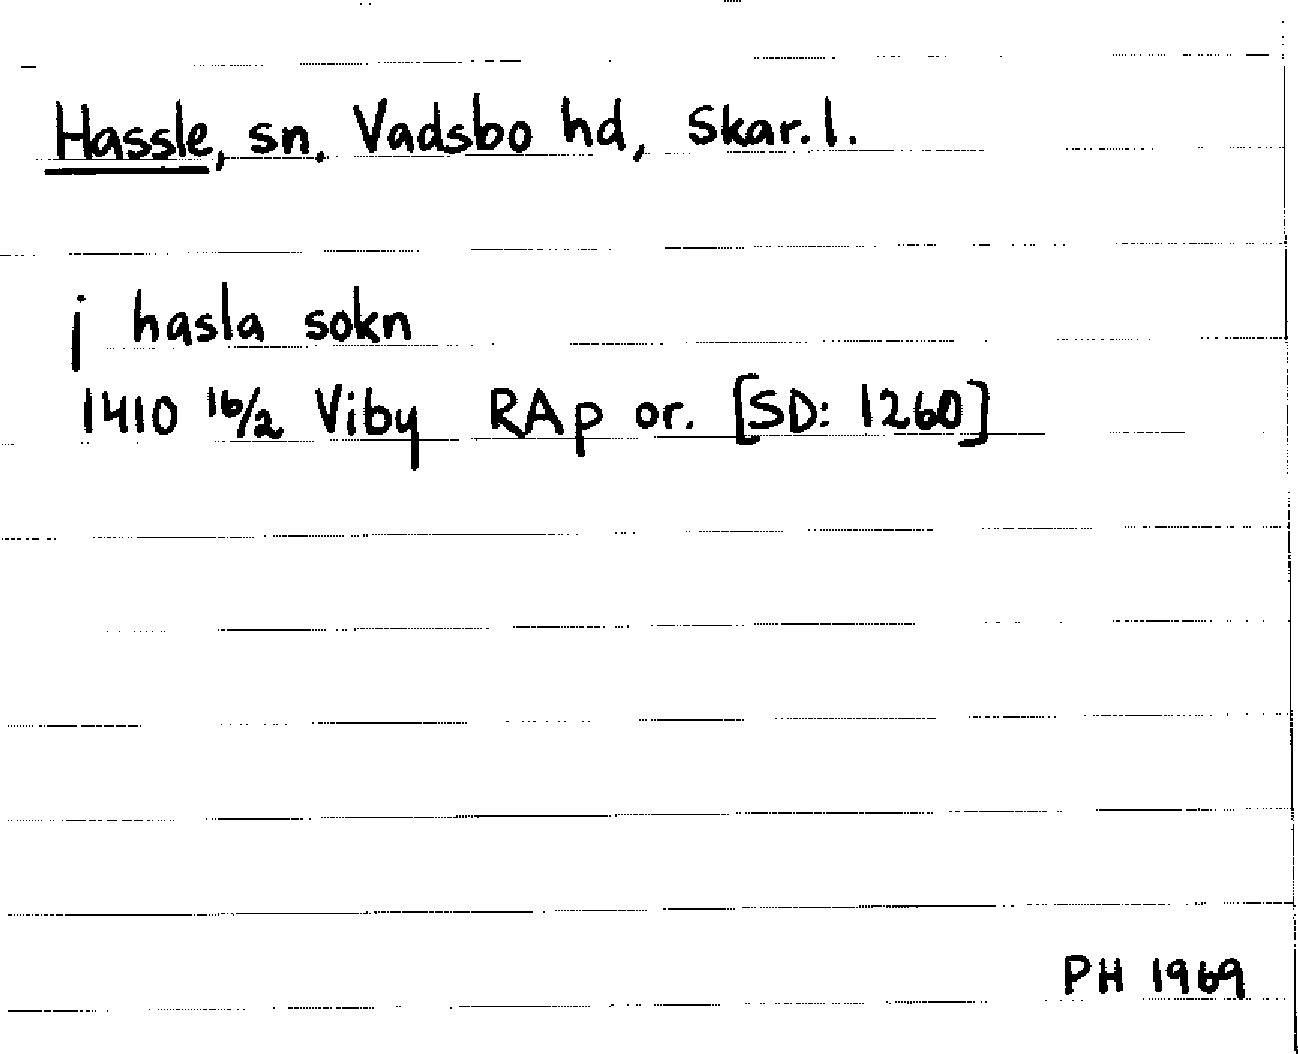 Hassle, sn. Vadsbo hd, Skar. l.
j hasla sokn
1410 16/2 Viby RAp or. [SD: 1260]
PH 1969